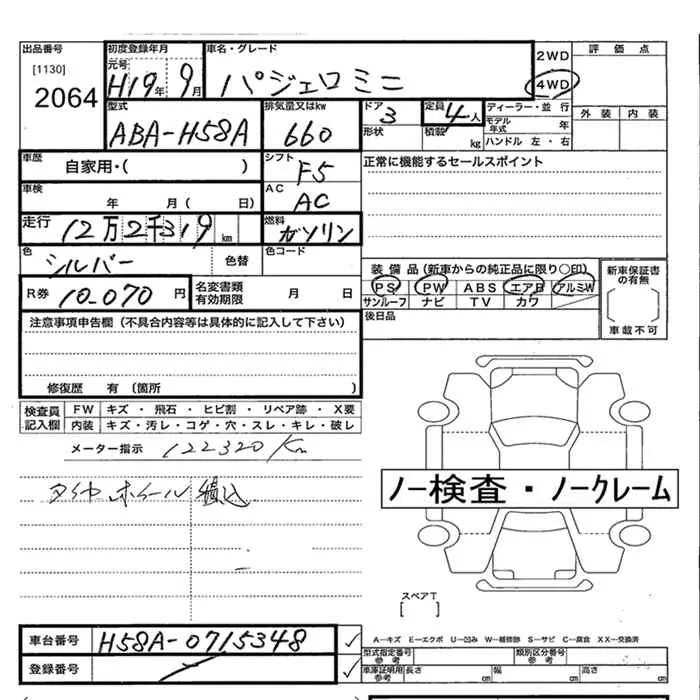 出品番号 初度登録年月 車名・グレード 2WD 評価点
[1130] 元号 H19年 9月 パジェロミニ 4WD
2064 外装 内装
型式 ABA-H58A 排気量又はkw 660 ドア 3 定員 4人 ディーラー・並行
形状 積載 kg モデル年式 年
ハンドル 左・右
車歴 自家用・( ) シフト F5 正常に機能するセールスポイント
車検 年 月( 日) AC AC
走行 12万2千319km 燃料 ガソリン
色 シルバー 色替 色コード
装備品(新車からの純正品に限り○印) 新車保証書の有無
R券 10_070円 名変書類有効期限 月 日 PS PW ABS エアB アルミW
サンルーフ ナビ TV カワ
後日品 車載不可
注意事項申告欄(不具合内容等は具体的に記入して下さい)
修復歴 有(箇所 )
検査員記入欄 FW キズ・飛石・ヒビ割・リペア跡・X要
内装 キズ・汚レ・コゲ・穴・スレ・キレ・破レ
メーター指示 122320Km
タイヤ ホイール 積込
ノー検査・ノークレーム
スペアT
[ ]
車台番号 H58A-0715348
A–キズ E–エクボ U–凹み W–補修跡 S–サビ C–腐食 XX–交換済
型式指定番号 参考 類別区分番号 参考
登録番号 車庫証明用参考 長さ cm 幅 cm 高さ cm